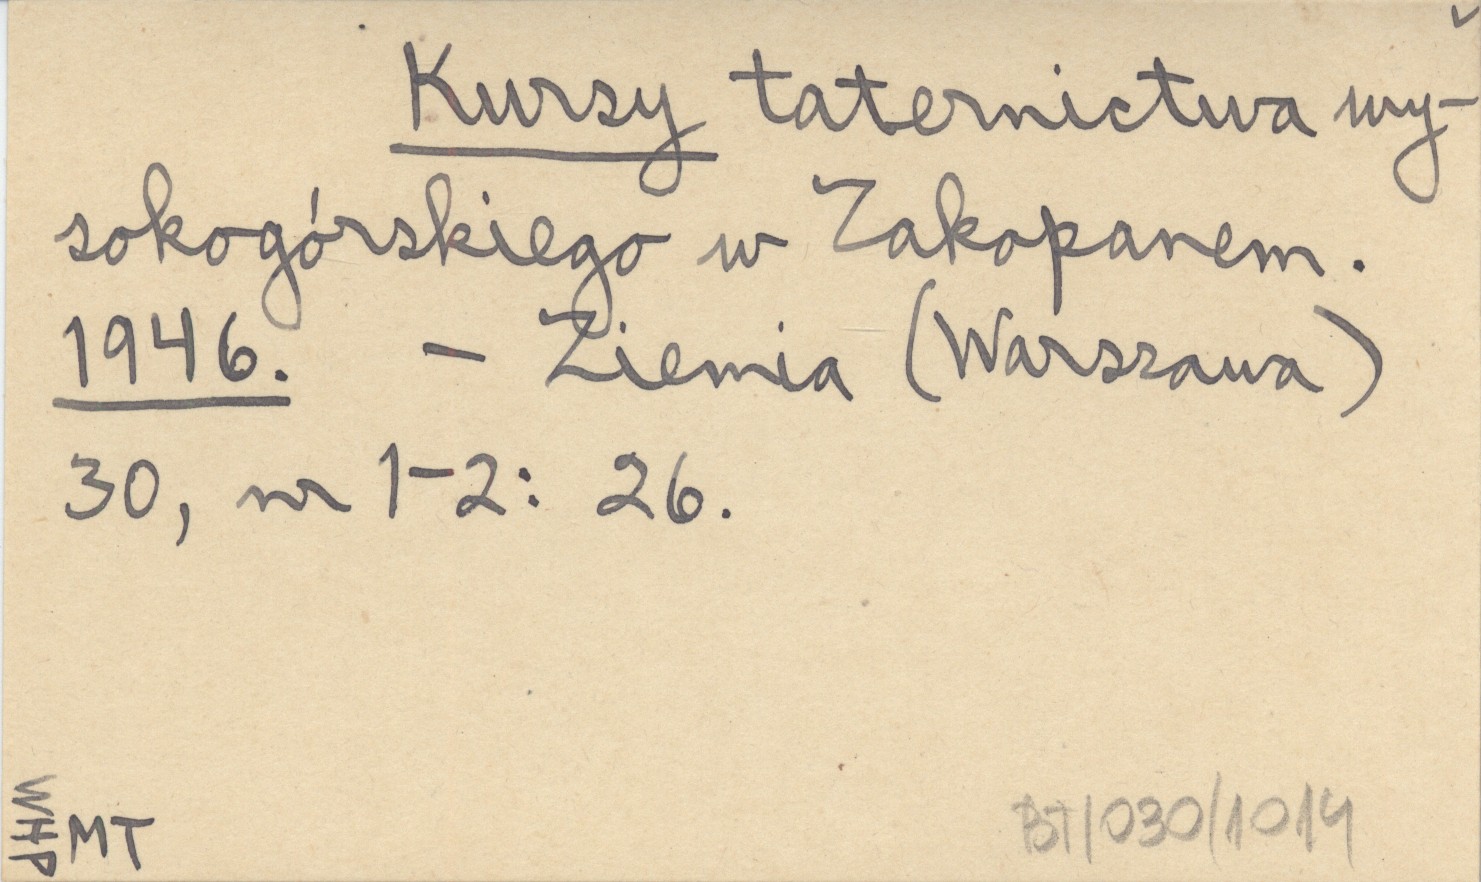 Kursy taternictwa wy-
sokogórskiego w Zakopanem.
1946. – Ziemia (Warszawa)
30, nr 1-2: 26.
WHP
MT
BT/030/1014